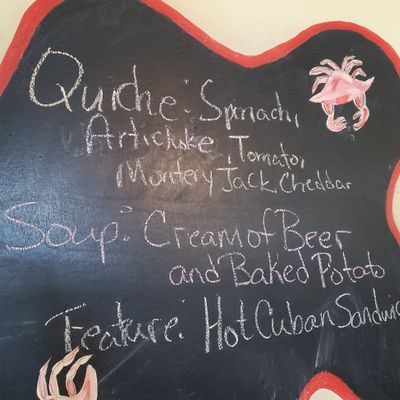 Quiche: Spinach,
Artichoke, Tomato,
Montery Jack, Cheddar
Soup: Cream of Beer
and Baked Potato
Feature: Hot Cuban